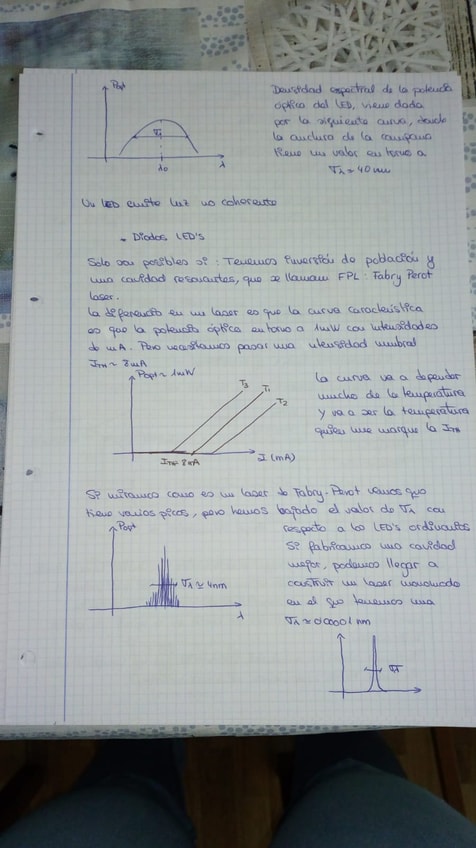 Popt
Densidad espectral de la potencia
óptica del LED, viene dada
por la siguiente curva, donde
la anchura de la campana
tiene un valor en torno a
σλ ≈ 40 nm
σλ
λo
λ
Un LED emite luz no coherente
• Diodos LED's
Solo son posibles si: Tenemos inversión de población y
una cavidad resonantes, que se llaman FPL: Fabry Perot
laser.
La diferencia en un laser es que la curva característica
es que la potencia óptica entorno a 1mW con intensidades
de mA. Pero necesitamos pasar una intensidad umbral
ITH ≈ 8mA
Popt ≈ 1mW
T3
T1
T2
ITH ≈ 8mA
I (mA)
La curva va a depender
mucho de la temperatura
y va a ser la temperatura
quien me marque la ITH
Si miramos como es un laser de Fabry-Perot vemos que
tiene varios picos, pero hemos bajado el valor de σλ con
respecto a los LED's ordinarios
Popt
σλ ≃ 4nm
λ
Si fabricamos una cavidad
mejor, podemos llegar a
construir un laser monomodo
en el que tenemos una
σλ ≈ 0'00001 nm
σλ